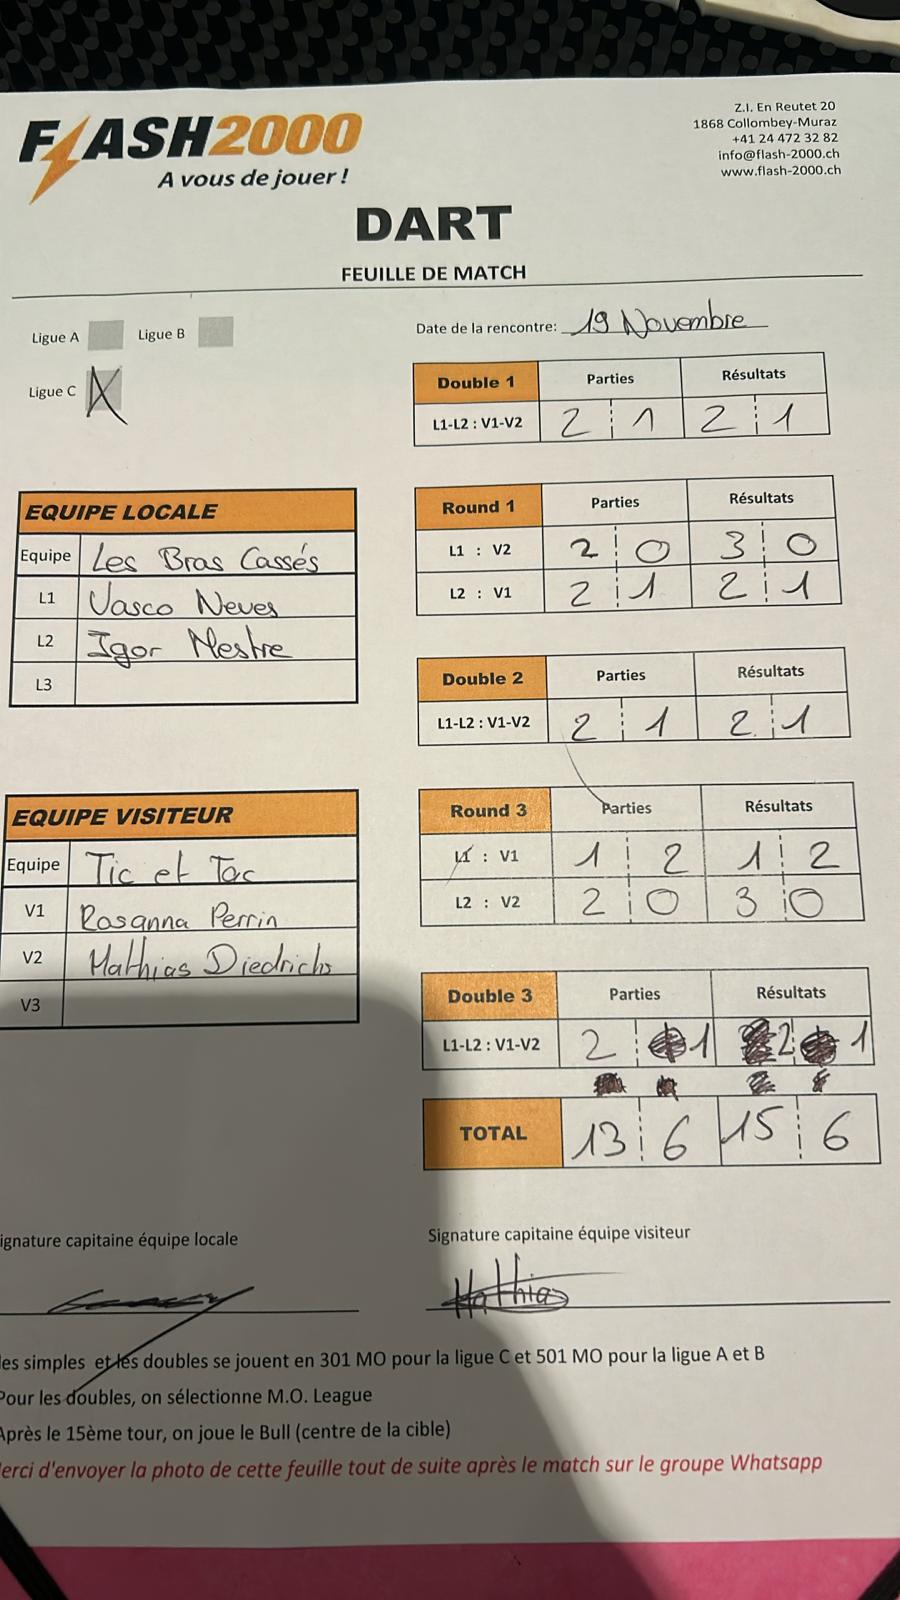 FLASH2000
A vous de jouer !
Z.I. En Reutet 20
1868 Collombey-Muraz
+41 24 472 32 82
info@flash-2000.ch
www.flash-2000.ch
DART
FEUILLE DE MATCH
Ligue A Ligue B
Ligue C X
Date de la rencontre: 19 Novembre
Double 1 Parties Résultats
L1-L2 : V1-V2 2 1 2 1
EQUIPE LOCALE
Equipe Les Bras Cassés
L1 Vasco Neves
L2 Igor Mestre
L3
Round 1 Parties Résultats
L1 : V2 2 0 3 0
L2 : V1 2 1 2 1
Double 2 Parties Résultats
L1-L2 : V1-V2 2 1 2 1
EQUIPE VISITEUR
Equipe Tic et Tac
V1 Rosanna Perrin
V2 Mathias Diedrichs
V3
Round 3 Parties Résultats
L1 : V1 1 2 1 2
L2 : V2 2 0 3 0
Double 3 Parties Résultats
L1-L2 : V1-V2 2 1 2 1
TOTAL 13 6 15 6
ignature capitaine équipe locale
Signature capitaine équipe visiteur
Mathias
les simples et les doubles se jouent en 301 MO pour la ligue C et 501 MO pour la ligue A et B
Pour les doubles, on sélectionne M.O. League
Après le 15ème tour, on joue le Bull (centre de la cible)
erci d'envoyer la photo de cette feuille tout de suite après le match sur le groupe Whatsapp